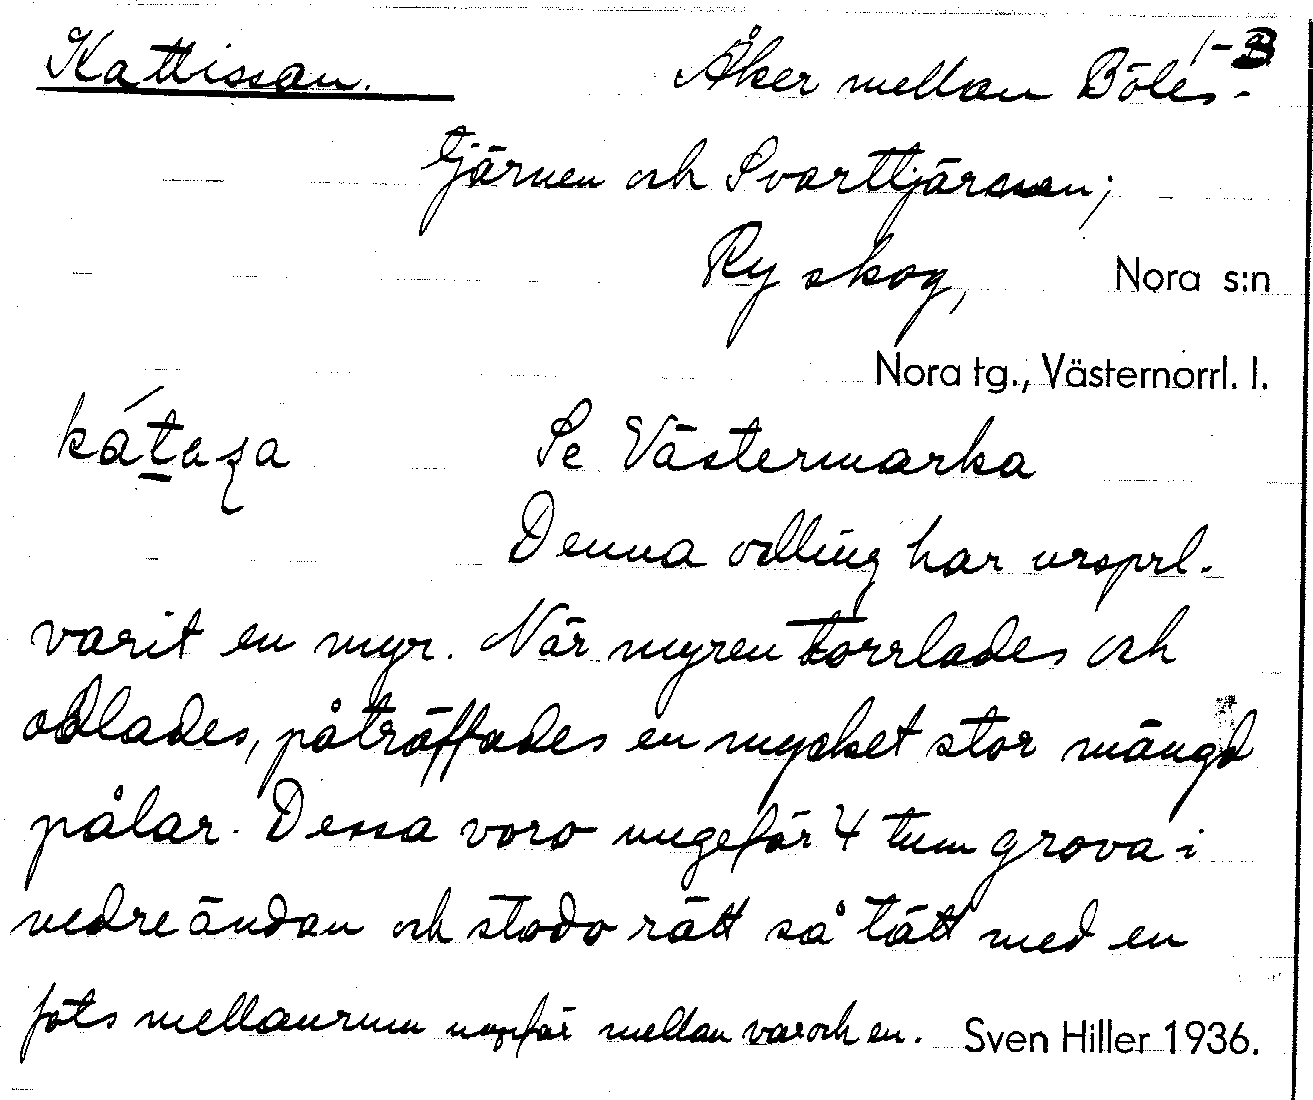 Kattissan. Åker mellan Böles- 1-3
tjärnen och Svarttjärnen;
Ry skog, Nora s:n
Nora tg., Västernorrl. l.
Se Västermarka
Denna odling har ursprl.
varit en myr. När myren torrlades och
odlades, påträffades en mycket stor mängd
pålar. Dessa voro ungefär 4 tum grova i
nedre ändan och stodo rätt så tätt med en
fots mellanrum ungefär mellan var och en. Sven Hiller 1936.